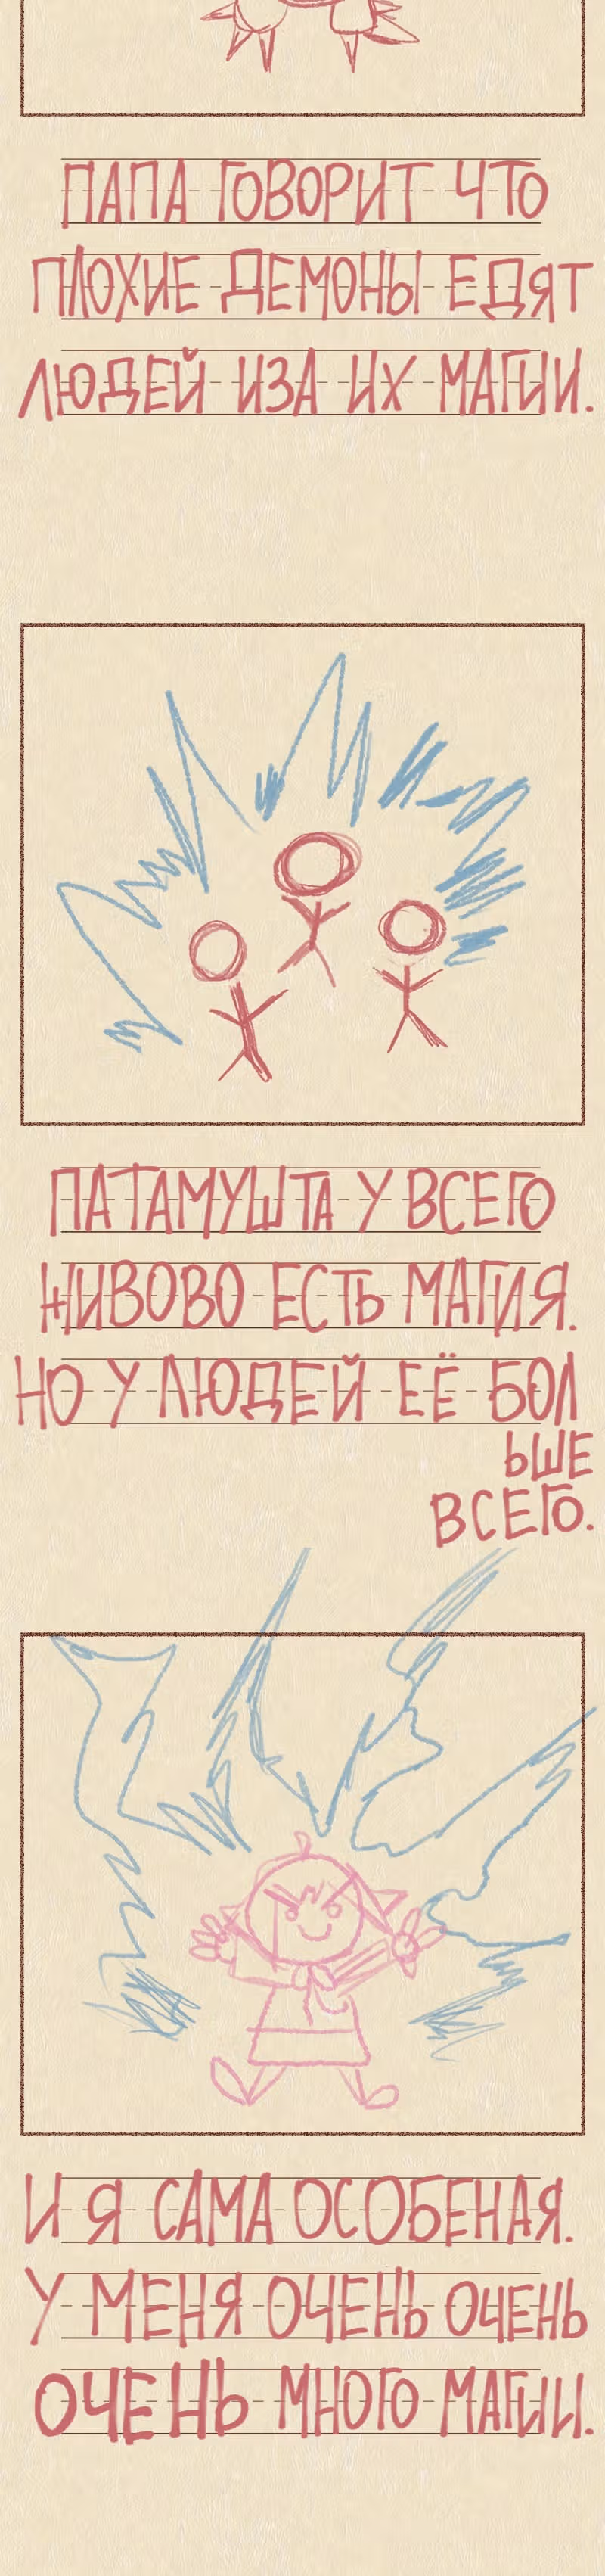 ПАПА ГОВОРИТ ЧТО
ПЛОХИЕ ДЕМОНЫ ЕДЯТ
ЛЮДЕЙ ИЗА ИХ МАГИИ.
ПАТАМУШТА У ВСЕГО
ЖИВОВО ЕСТЬ МАГИЯ.
НО У ЛЮДЕЙ ЕЁ БОЛ
ЬШЕ
ВСЕГО.
И Я САМА ОСОБЕНАЯ.
У МЕНЯ ОЧЕНЬ ОЧЕНЬ
ОЧЕНЬ МНОГО МАГИИ.